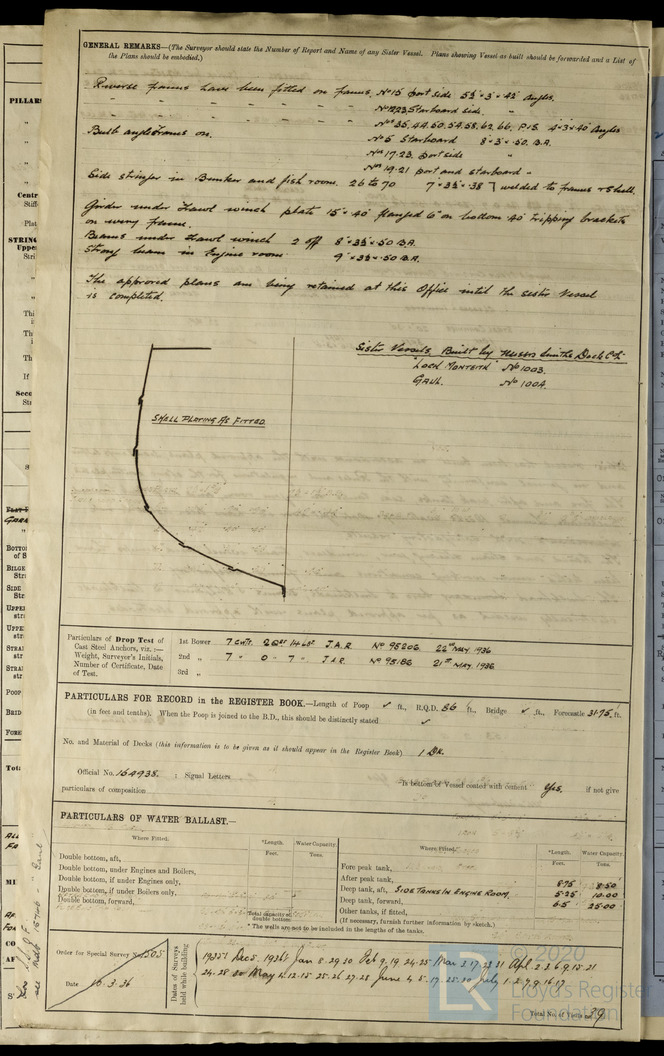 GENERAL REMARKS—(The Surveyor should state the Number of Report and Name of any Sister Vessel. Plans showing Vessel as built should be forwarded and a List of
the Plans should be embodied.)
Reverse frames have been fitted on frames. No 15 port side 5½ × 3 × 42 Angles.
" - - - - - - Starboard side. "
Nos 35, 44, 50, 54, 58, 62, 66. P & S 4 × 3 × 40 Angles
Bulb angle frames on. No 5 Starboard 8 × 3 × .50. B.A.
Nos 17-23. port side "
Nos 19-21 port and starboard "
Side stringer in Bunker and fish room. 26 to 70 7 × 3½ × .38 } welded to frames & shell.
Girder under trawl winch plate 15 × 40 flanged 6" on bottom .40 tripping brackets
on every frame.
Beams under trawl winch 2 off 8 × 3½ × .50 B.A.
Strong beam in Engine room 9 × 3½ × .50 B.A.
The approved plans are being retained at this Office until the sister vessel
is completed.
Sister Vessels, Built by Messrs Smiths Dock Co Ltd
"LOCH MONTEITH" No 1003.
GAUL. No 1004.
SHELL PLATING AS FITTED.
Particulars of Drop Test of
Cast Steel Anchors, viz. :—
Weight, Surveyor's Initials,
Number of Certificate, Date
of Test.
1st Bower 7 cwts. 2 Qrs 14 lbs J.A.R. No 95206. 22nd MAY 1936
2nd " 7 " 0 - 7 " J.A.R. No 95186 21st MAY 1936
3rd "
PARTICULARS FOR RECORD in the REGISTER BOOK.—Length of Poop ✓ ft., R.Q.D. 86 ft., Bridge ✓ ft., Forecastle 31.75 ft.
(in feet and tenths). When the Poop is joined to the B.D., this should be distinctly stated ✓
No. and Material of Decks (this information is to be given as it should appear in the Register Book) 1 Dk.
Official No. 164938. ; Signal Letters Is bottom of Vessel coated with cement Yes. if not give
particulars of composition
PARTICULARS OF WATER BALLAST.—
Where Fitted. *Length. Water Capacity.
Feet. Tons.
Double bottom, aft,
Double bottom, under Engines and Boilers,
Double bottom, if under Engines only,
Double bottom, if under Boilers only,
Double bottom, forward,
Total capacity of double bottom
Where Fitted. *Length. Water Capacity.
Feet. Tons.
Fore peak tank,
After peak tank, 8.75 8.50
Deep tank, aft, SIDE TANKS IN ENGINE ROOM. 5.25 10.00
Deep tank, forward, 6.5 25.00
Other tanks, if fitted,
(If necessary, furnish further information by sketch.)
* The wells are not to be included in the lengths of the tanks.
Order for Special Survey No. 1505
Date 16.3.36
Dates of Surveys
held while building
1935: Dec 5. 1936: Jan 8. 29. 30 Feb 9. 19. 24. 25 Mar 3. 17. 23. 31 Apl. 2. 3. 6. 9. 15. 21
24. 28. 30 May 4. 12. 15. 25. 26. 27. 28 June 4. 5. 17. 25. 30 July 1. 2. 7. 9. 16. 17
Total No. of Visits 39
© 2020
Lloyd's Register
Foundation